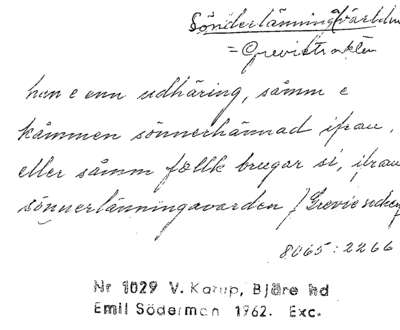 Sönderlänning(a)världen
= Grevietrakten
han e enn udhäring, såmm e
kåmmen sönnerhännad ifrau,
eller såmm föllk brugar si, ifrau
sönnerlänningavarden / Grevie socken
8065:2266
Nr 1029 V. Karup, Bjäre hd
Emil Söderman 1962. Exc.